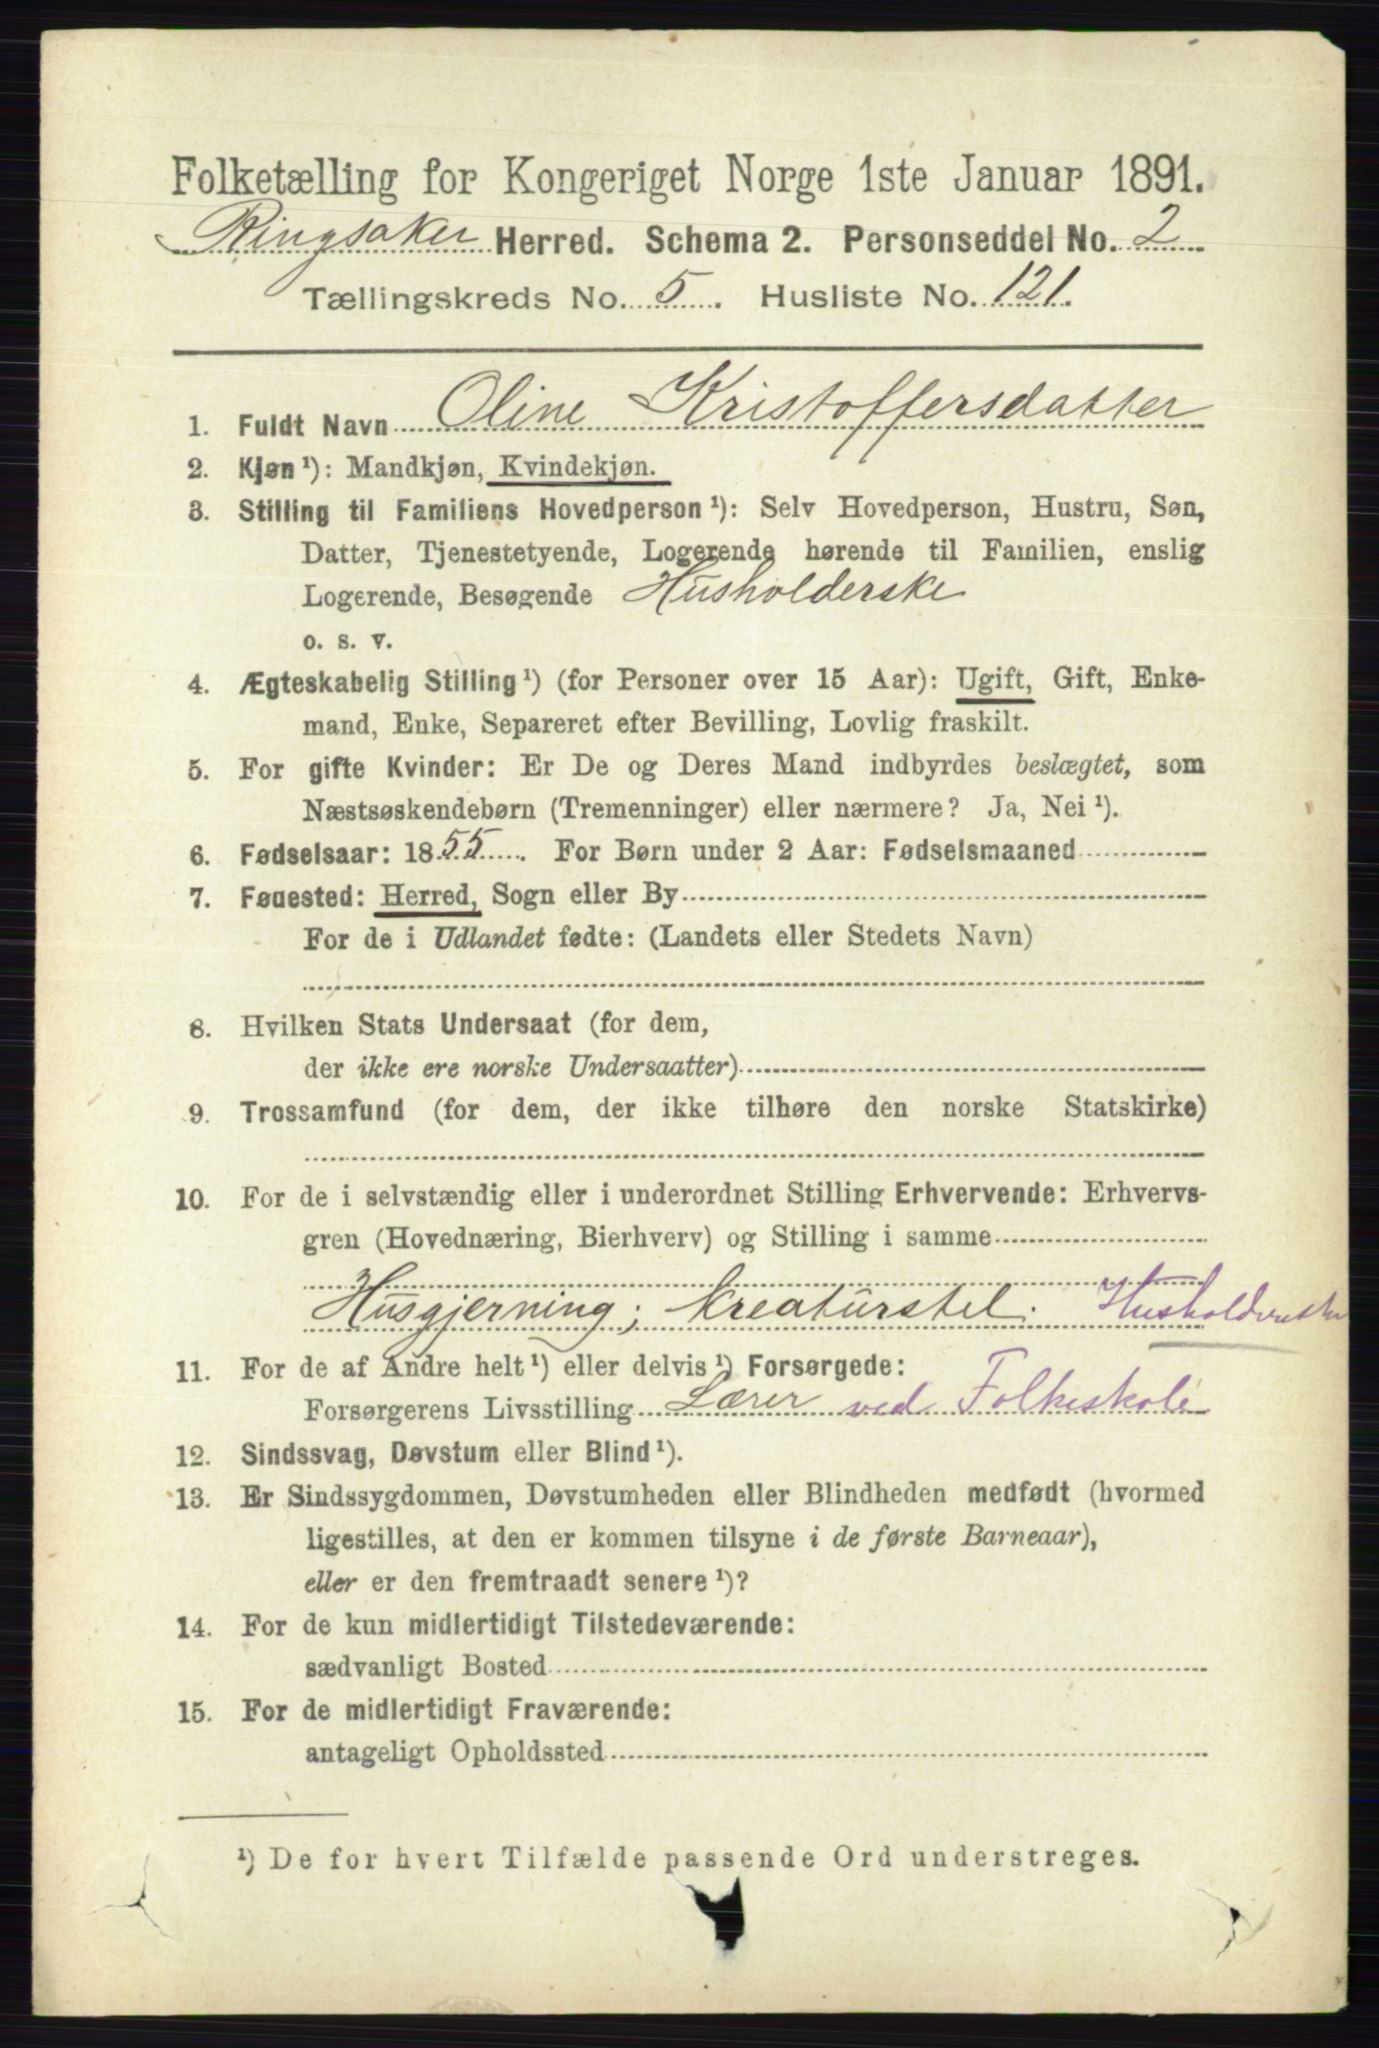 Folketælling for Kongeriget Norge 1ste Januar 1891.
Ringsaker Herred. Schema 2. Personseddel No. 2
Tællingskreds No. 5. Husliste No. 121.
1. Fuldt Navn Oline Kristoffersdatter
2. Kjøn ¹): Mandkjøn, Kvindekjøn.
3. Stilling til Familiens Hovedperson ¹): Selv Hovedperson, Hustru, Søn,
Datter, Tjenestetyende, Logerende hørende til Familien, enslig
Logerende, Besøgende Husholderske
o. s. v.
4. Ægteskabelig Stilling ¹) (for Personer over 15 Aar): Ugift, Gift, Enke-
mand, Enke, Separeret efter Bevilling, Lovlig fraskilt.
5. For gifte Kvinder: Er De og Deres Mand indbyrdes beslægtet, som
Næstsøskendebørn (Tremenninger) eller nærmere? Ja, Nei ¹).
6. Fødselsaar: 1855. For Børn under 2 Aar: Fødselsmaaned
7. Fødested: Herred, Sogn eller By
For de i Udlandet fødte: (Landets eller Stedets Navn)
8. Hvilken Stats Undersaat (for dem,
der ikke ere norske Undersaatter)
9. Trossamfund (for dem, der ikke tilhøre den norske Statskirke)
10. For de i selvstændig eller i underordnet Stilling Erhvervende: Erhvervs-
gren (Hovednæring, Bierhverv) og Stilling i samme
Husgjerning; kreaturstel. Husholderske
11. For de af Andre helt ¹) eller delvis ¹) Forsørgede:
Forsørgerens Livsstilling Lærer ved Folkeskole
12. Sindssvag, Døvstum eller Blind ¹).
13. Er Sindssygdommen, Døvstumheden eller Blindheden medfødt (hvormed
ligestilles, at den er kommen tilsyne i de første Barneaar),
eller er den fremtraadt senere ¹)?
14. For de kun midlertidigt Tilstedeværende:
sædvanligt Bosted
15. For de midlertidigt Fraværende:
antageligt Opholdssted
¹) De for hvert Tilfælde passende Ord understreges.